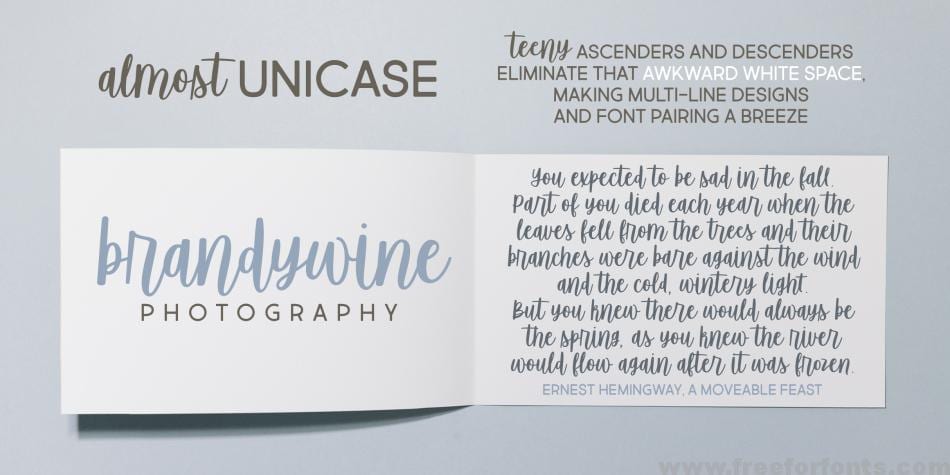 almost UNICASE
teeny ASCENDERS AND DESCENDERS
ELIMINATE THAT AWKWARD WHITE SPACE,
MAKING MULTI-LINE DESIGNS
AND FONT PAIRING A BREEZE
brandywine
PHOTOGRAPHY
You expected to be sad in the fall.
Part of you died each year when the
leaves fell from the trees and their
branches were bare against the wind
and the cold, wintery light.
But you knew there would always be
the spring, as you knew the river
would flow again after it was frozen.
ERNEST HEMINGWAY, A MOVEABLE FEAST
www.freeforfonts.com